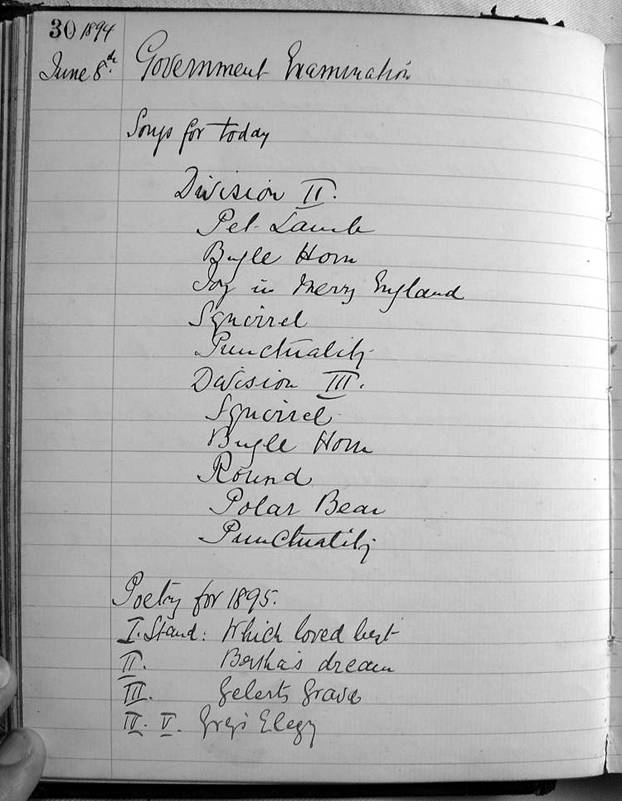 30 1894
June 8th Government Examination
Songs for today
Division II.
Pet Lamb
Bugle Horn
Joy in Merry England
Squirrel
Punctuality
Division III.
Squirrel
Bugle Horn
Round
Polar Bear
Punctuality
Poetry for 1895.
I. Stand: Which loved best
II. Bertha's dream
III. Gelerts Grave
IV. V. Gray's Elegy